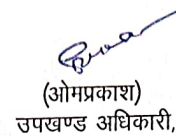 (ओमप्रकाश)
उपखण्ड अधिकारी,